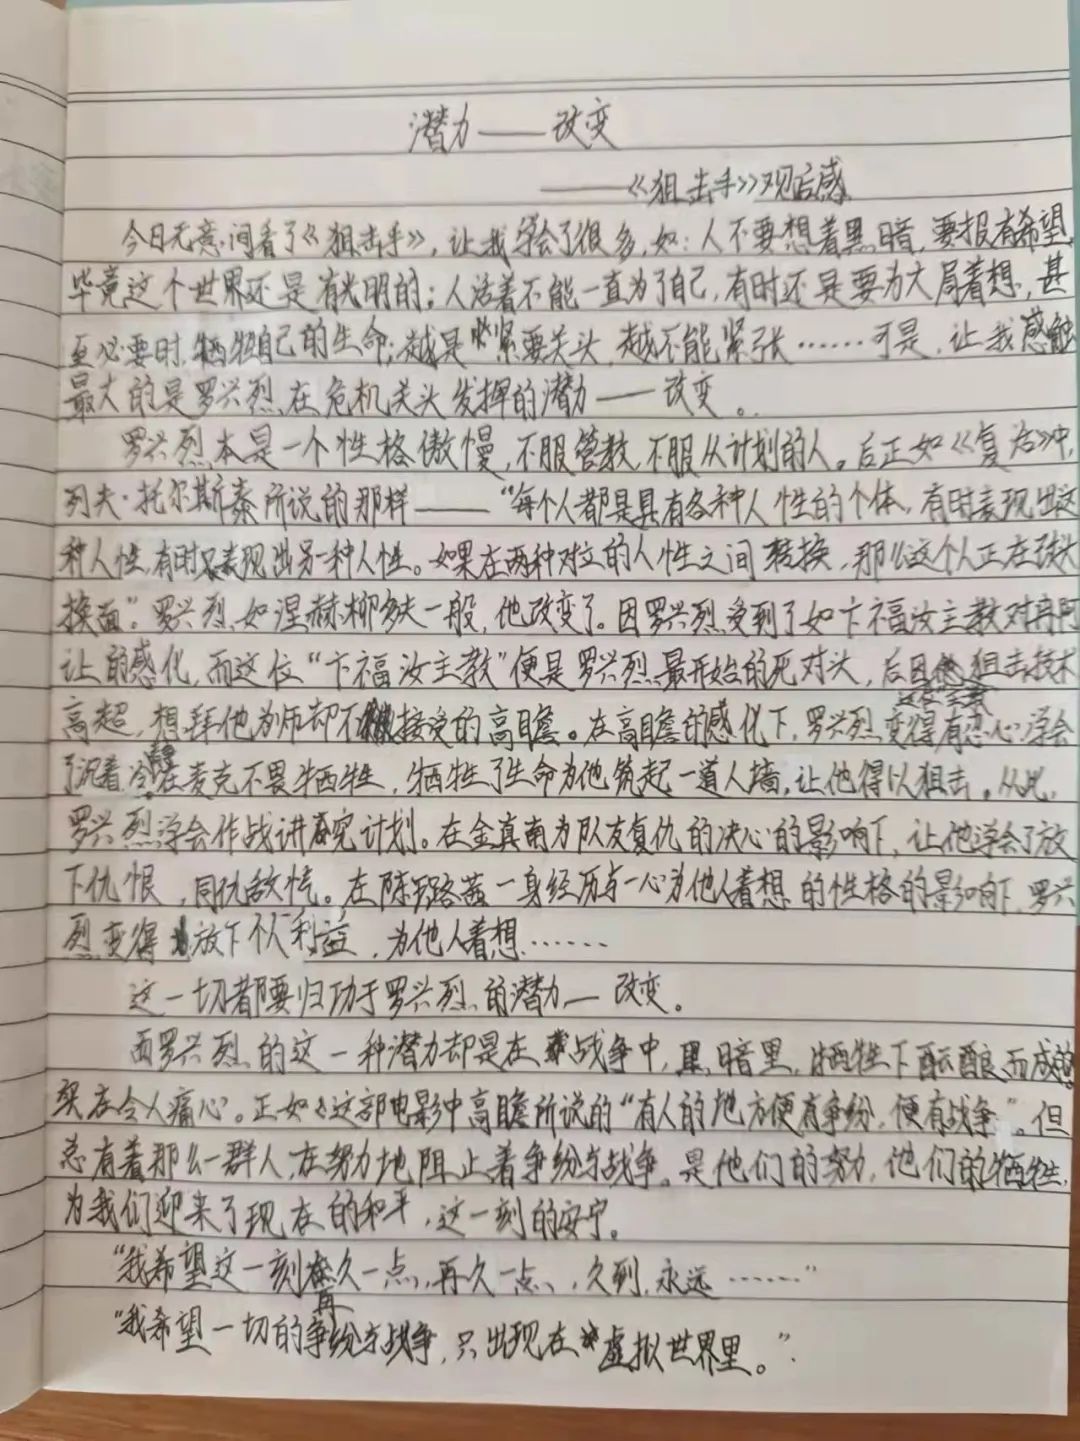 潜力——改变
——《狙击手》观后感
今日无意间看了《狙击手》，让我学会了很多，如：人不要想着黑暗，要报有希望，
毕竟这个世界还是有光明的；人活着不能一直为了自己，有时还是要为大局着想，甚
至必要时，牺牲自己的生命；越是紧要关头，越不能紧张……可是，让我感触
最大的是罗兴烈在危机关头发挥的潜力——改变。
罗兴烈本是一个性格傲慢，不服管教，不服从计划的人。后正如《复活》中，
列夫·托尔斯泰所说的那样——“每个人都是具有各种人性的个体，有时表现出这
种人性，有时又表现出另一种人性。如果在两种对立的人性之间转换，那么这个人正在改头
换面”。罗兴烈如涅赫柳多夫一般，他改变了。因罗兴烈受到了如卞福汝主教对冉阿
让的感化，而这位“卞福汝主教”便是罗兴烈最开始的死对头，后因他狙击技术
高超，想拜他为师却不被接受的高瞻。在高瞻的感化下，罗兴烈变得有忍心，学会
了沉着冷静。在麦克不畏牺牲，牺牲了生命为他筑起一道人墙，让他得以狙击。从此，
罗兴烈学会作战讲究计划。在金真南为队友复仇的决心的影响下，让他学会了放
下仇恨，同仇敌忾。在陈路燕一身经历与一心为他人着想的性格的影响下，罗兴
烈变得放下个人利益，为他人着想……
这一切都要归功于罗兴烈的潜力——改变。
而罗兴烈的这一种潜力却是在战争中，黑暗里，牺牲下酝酿而成的
实在令人痛心。正如这部电影中高瞻所说的“有人的地方便有争纷，便有战争”。但
总有着那么一群人在努力地阻止着争纷与战争。是他们的努力，他们的牺牲，
为我们迎来了现在的和平，这一刻的安宁。
“我希望这一刻再久一点，再久一点，久到永远……”
“我希望一切的争纷与战争，只出现在虚拟世界里。”